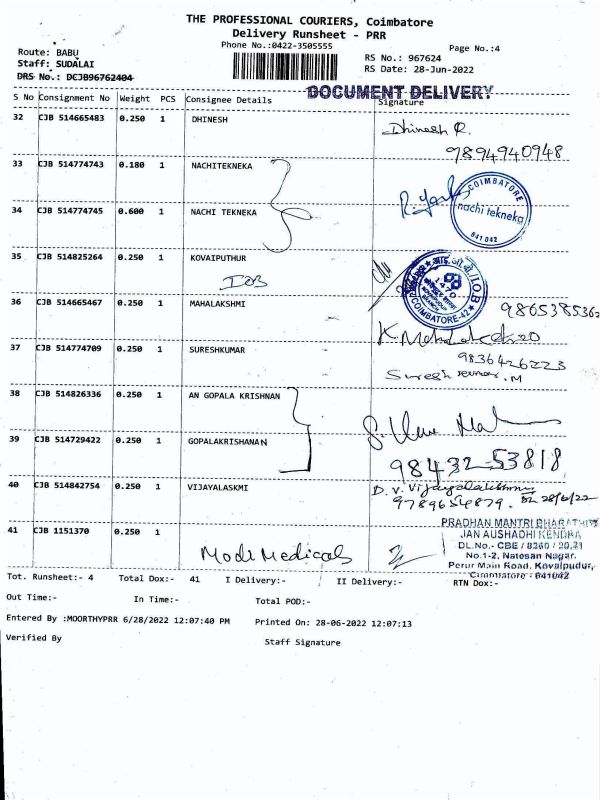 THE PROFESSIONAL COURIERS, Coimbatore
Delivery Runsheet - PRR
Phone No.:0422-3505555
Page No.:4
Route: BABU
Staff: SUDALAI
DRS No.: DCJB96762404
RS No.: 967624
RS Date: 28-Jun-2022
DOCUMENT DELIVERY
S No Consignment No Weight PCS Consignee Details Signature
32 CJB 514665483 0.250 1 DHINESH
Dhinesh R.
9894940948
33 CJB 514774743 0.180 1 NACHITEKNEKA
COIMBATORE
nachi tekneka
641 042
34 CJB 514774745 0.600 1 NACHI TEKNEKA
35 CJB 514825264 0.250 1 KOVAIPUTHUR
IOB
I.O.B
BRANCH
COIMBATORE-42
36 CJB 514665467 0.250 1 MAHALAKSHMI
9865385362
37 CJB 514774709 0.250 1 SURESHKUMAR
9836426223
Suresh kumar. M
38 CJB 514826336 0.250 1 AN GOPALA KRISHNAN
39 CJB 514729422 0.250 1 GOPALAKRISHANAN
98432-53818
40 CJB 514842754 0.250 1 VIJAYALASKMI
D. V. Vijayalakshmi
9789654879. 28/6/22
41 CJB 1151370 0.250 1
Modi Medicals
PRADHAN MANTRI BHARATHIYA
JAN AUSHADHI KENDRA
DL.No.- CBE / 8260 / 20,21
No.1-2, Natesan Nagar,
Perur Main Road, Kovaipudur,
Coimbatore - 641042
Tot. Runsheet:- 4 Total Dox:- 41 I Delivery:- II Delivery:- RTN Dox:-
Out Time:- In Time:- Total POD:-
Entered By :MOORTHYPRR 6/28/2022 12:07:40 PM Printed On: 28-06-2022 12:07:13
Verified By Staff Signature